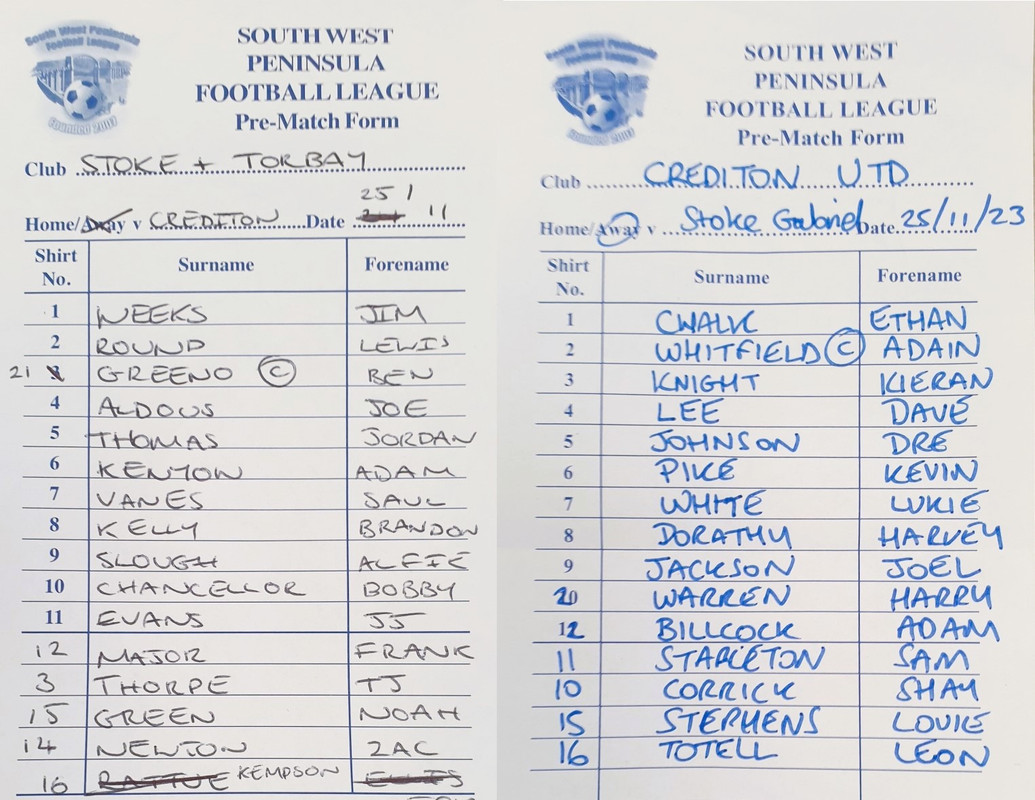 South West Peninsula
Football League
Founded 2007
SOUTH WEST
PENINSULA
FOOTBALL LEAGUE
Pre-Match Form
Club STOKE + TORBAY
25 /
Home/Away v CREDITON Date 11
Shirt No. Surname Forename
1 WEEKS JIM
2 ROUND LEWIS
21 3 GREENO C BEN
4 ALDOUS JOE
5 THOMAS JORDAN
6 KENYON ADAM
7 VANES SAUL
8 KELLY BRANDON
9 SLOUGH ALFIE
10 CHANCELLOR BOBBY
11 EVANS JJ
12 MAJOR FRANK
3 THORPE TJ
15 GREEN NOAH
14 NEWTON ZAC
16 RATTUE KEMPSON ELLIS
South West Peninsula
Football League
Founded 2007
SOUTH WEST
PENINSULA
FOOTBALL LEAGUE
Pre-Match Form
Club CREDITON UTD
Home/Away v Stoke Gabriel Date 25/11/23
Shirt No. Surname Forename
1 CWALK ETHAN
2 WHITFIELD C ADAIN
3 KNIGHT KIERAN
4 LEE DAVE
5 JOHNSON DRE
6 PIKE KEVIN
7 WHITE LUKIE
8 DORATHY HARVEY
9 JACKSON JOEL
20 WARREN HARRY
12 BILLCOCK ADAM
11 STAPLETON SAM
10 CORRICK SHAY
15 STEPHENS LOUIE
16 TOTELL LEON